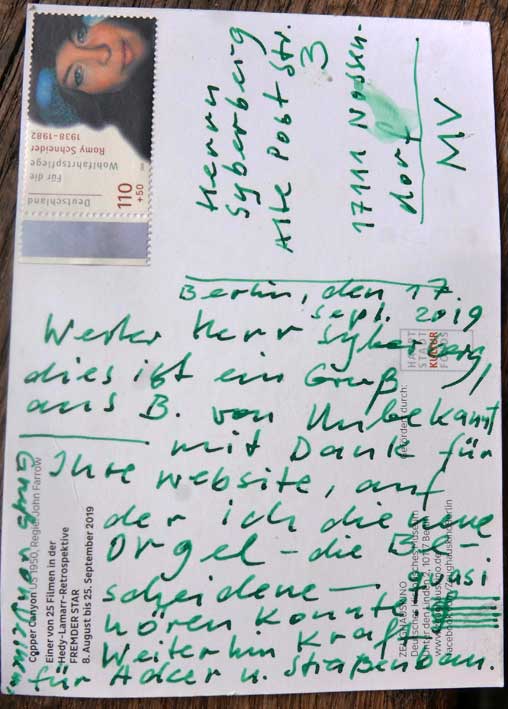 Deutschland
110
+50
Für die
Wohlfahrtspflege
Romy Schneider
1938–1982
Herrn
Syberberg
Alte Post Str.
3
17111 Nossen-
dorf
MV
Berlin, den 17.
Sept. 2019
Werter Herr Syberberg,
dies ist ein Gruß
aus B. von Unbekannt
mit Dank für
Ihre website, auf
der ich die neue
Orgel – die Be-
scheidene – quasi
hören konnte.
Weiterhin Kraft
für Acker u. Straßenbau.
Copper Canyon US 1950, Regie: John Farrow
Einer von 25 Filmen in der
Hedy-Lamarr-Retrospektive
FREMDER STAR
8. August bis 25. September 2019
gefördert durch:
HAUPT
STADT
KULTUR
FONDS
ZEUGHAUSKINO
Deutsches Historisches Museum
Unter den Linden 2, 10117 Berlin
facebook.com/Zeughauskinoberlin